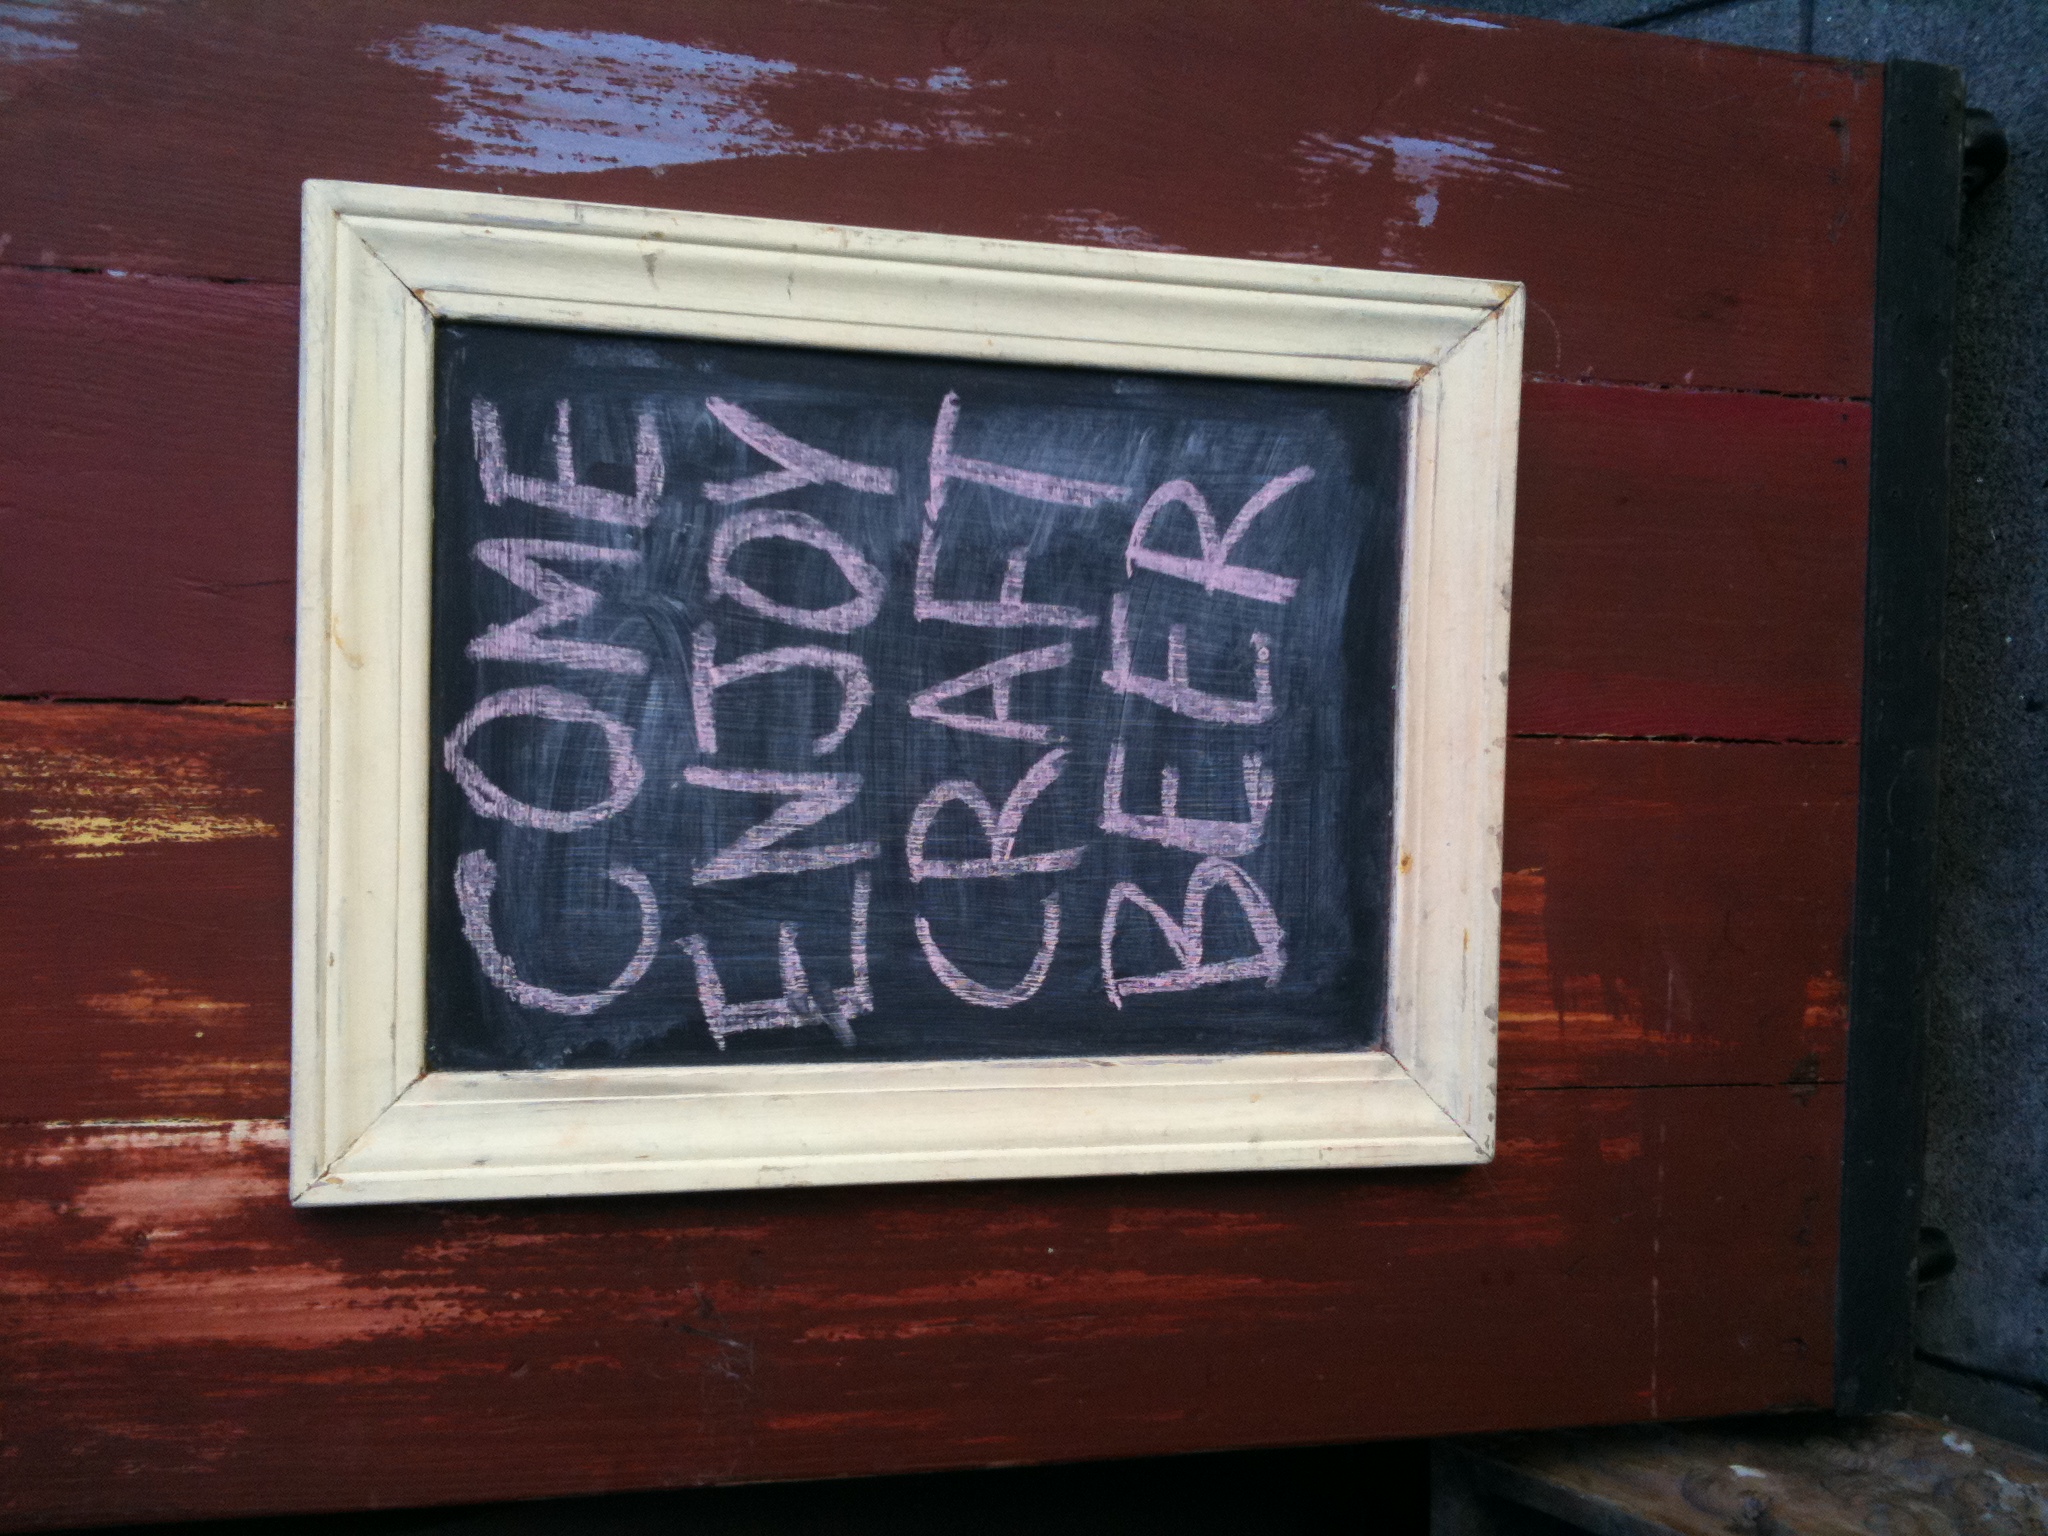 COME
ENJOY
CRAFT
BEER